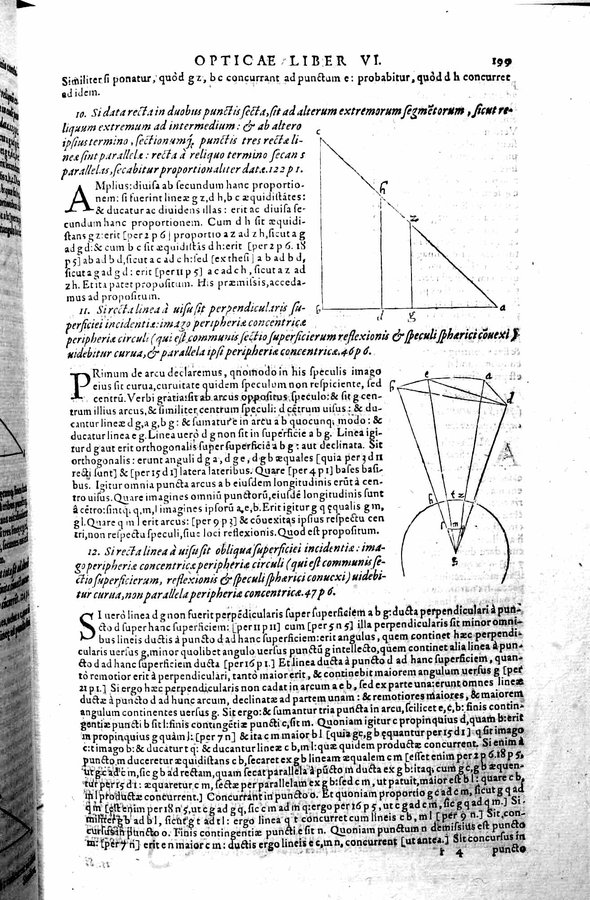 OPTICAE LIBER VI. 199
Similiter si ponatur, quòd g z, b c concurrant ad punctum e: probabitur, quòd d h concurret
ad idem.
10. Si data recta in duobus punctis secta, sit ad alterum extremorum segmẽtorum, sicut re-
liquum extremum ad intermedium: & ab altero
ipsius termino, sectionumq́; punctis tres rectæ li-
neæ sint parallelæ: recta à reliquo termino secans
parallelas, secabitur proportionaliter datæ. 122 p 1.
AMplius: diuisa ab secundum hanc proportio-
nem: si fuerint lineæ g z, d h, b c æquidistãtes:
& ducatur ac diuidens illas: erit ac diuisa se-
cundum hanc proportionem. Cum d h sit æquidi-
stans g z: erit [per 2 p 6] proportio a z ad z h, sicut a g
ad g d: & cum b c sit æquidistãs d h: erit [per 2 p 6. 18
p 5] a b ad b d, sicut a c ad c h: sed [ex thesi] a b ad b d,
sicut a g ad g d: erit [per 11 p 5] a c ad c h, sicut a z ad
z h. Et ita patet propositum. His præmissis, acceda-
mus ad propositum.
c
h
z
b d g a
11. Si recta linea à uisu sit perpendicularis su-
perficiei incidentiæ: imago peripheriæ concentricæ
peripheriæ circuli (qui est communis sectio superficierum reflexionis & speculi sphærici cõuexi)
uidebitur curua, & parallela ipsi peripheriæ concentricæ. 46 p 6.
PRimum de arcu declaremus, quomodo in his speculis imago
eius sit curua, curuitate quidem speculum non respiciente, sed
centrũ. Verbi gratia: sit ab arcus oppositus speculo: & sit g cen-
trum illius arcus, & similiter centrum speculi: d cẽtrum uisus: & du-
cantur lineæ d g, a g, b g: & sumatur in arcu a b quocunq; modo: &
ducatur linea e g. Linea uerò d g non sit in superficie a b g. Linea igi-
tur d g aut erit orthogonalis super superficiẽ a b g: aut declinata. Sit
orthogonalis: erunt anguli d g a, d g e, d g b æquales [quia per 3 d 11
recti sunt] & [per 15 d 1] latera lateribus. Quare [per 4 p 1] bases basi-
bus. Igitur omnia puncta arcus a b eiusdem longitudinis erũt à cen-
tro uisus. Quare imagines omniũ punctorũ, eiusdẽ longitudinis sunt
à cẽtro: sintq́; q, m, l imagines ipsorũ a, e, b. Erit igitur g q ęqualis g m,
g l. Quare q m l erit arcus: [per 9 p 3] & cõuexitas ipsius respectu cen
tri, non respectu speculi, siue loci reflexionis. Quod est propositum.
b e a d
h t z
l m q
g
12. Si recta linea à uisu sit obliqua superficiei incidentiæ: ima-
go peripheriæ concentricæ peripheriæ circuli (qui est communis se-
ctio superficierum, reflexionis & speculi sphærici conuexi) uidebi-
tur curua, non parallela peripheriæ concentricæ. 47 p 6.
SI uerò linea d g non fuerit perpẽdicularis super superficiem a b g: ducta perpendiculari à pun-
cto d super hanc superficiem: [per 11 p 11] cum [per 5 n 5] illa perpendicularis sit minor omni-
bus lineis ductis à puncto d ad hanc superficiem: erit angulus, quem continet hæc perpendi-
cularis uersus g, minor quolibet angulo uersus punctũ g intellecto, quem continet alia linea à pun-
cto d ad hanc superficiem ducta [per 16 p 1.] Et linea ducta à puncto d ad hanc superficiem, quan-
tò remotior erit à perpendiculari, tantò maior erit, & continebit maiorem angulum uersus g [per
21 p 1.] Si ergo hæc perpendicularis non cadat in arcum a e b, sed ex parte una: erunt omnes lineæ
ductæ à puncto d ad hunc arcum, declinatæ ad partem unam: & remotiores maiores, & maiorem
angulum continentes uersus g. Sit ergo: & sumantur tria puncta in arcu, scilicet e, c, b: finis contin-
gentiæ puncti b sit l: finis contingentiæ puncti c, sit m. Quoniam igitur c propinquius d, quàm b: erit
m propinquius g quàm l: [per 7 n] & ita c m maior b l [quia g c, g b ęquantur per 15 d 1] q sit imago
c: t imago b: & ducatur t q: & ducantur lineæ c b, m l: quæ quidem productæ concurrent. Si enim à
puncto m duceretur æquidistans c b, secaret ex g b lineam æqualem c m [esset enim per 2 p 6. 18 p 5,
ut g c ad c m, sic g b ad rectam, quam secat parallela à pũcto m ducta ex g b: itaq; cum g c, g b æquen-
tur per 15 d 1: æquaretur c m, sectæ per parallelam ex g b: sed c m, ut patuit, maior est b l: quare c b,
m l productæ concurrent.] Concurrant in puncto o. Et quoniam proportio g c ad c m, sicut g q ad
q m [est enim per 18 n 5, ut c g ad g q, sic c m ad m q: ergo per 16 p 5, ut c g ad c m, sic g q ad q m.] Si-
militer g b ad b l, sicut g t ad t l: ergo linea q t concurret cum lineis c b, m l [per 9 n.] Sit, con-
cursus in puncto o. Finis contingentiæ puncti e sit n. Quoniam punctum n demissius est puncto
m: [per 7 n] erit e n maior c m: ductis ergo lineis e c, m n, concurrent [ut antea.] Sit concursus in
t 4 puncto